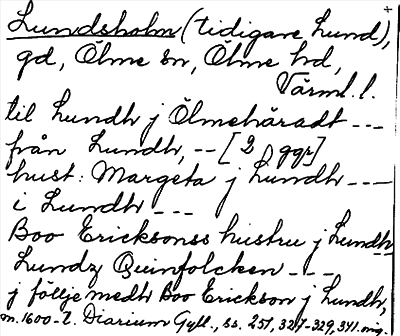 Lundsholm (tidigare Lund),
gd, Ölme sn, Ölme hd,
Värml. l.
til Lundh j Ölmehäradt ---
från Lundh, -- [2 ggr]
hust: Margeta j Lundh ---
i Lundh ---
Boo Ericksonss hustru j Lundh
Lundz Quinfolcken ---
j föllje medh Boo Erickson j Lundh,
m. 1600-t. Diarium Gyll., ss. 251, 327-329, 341. mg.